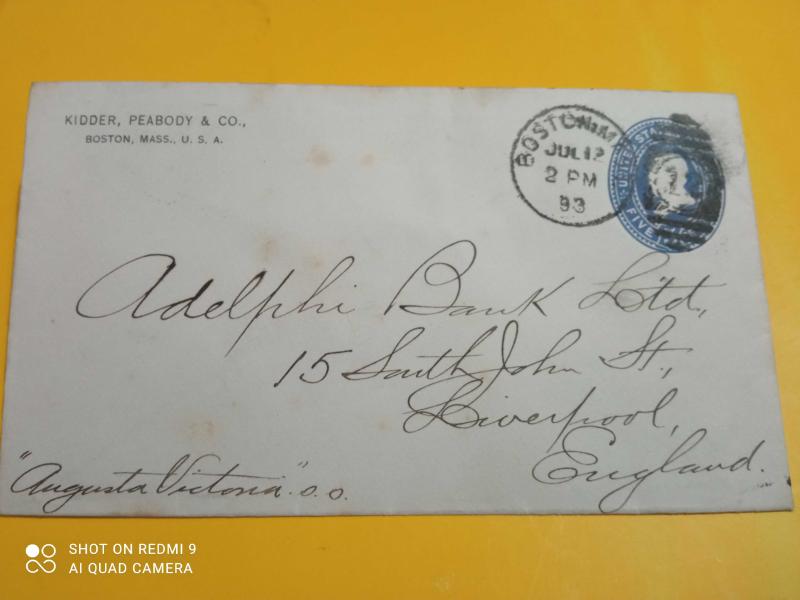 KIDDER, PEABODY & CO.,
BOSTON, MASS., U. S. A.
BOSTON, M
JUL 12
2 PM
93
UNITED STA
FIVE
Adelphi Bank Ltd,
15 South John St,
Liverpool,
England.
"Augusta Victoria" s.s.
SHOT ON REDMI 9
AI QUAD CAMERA